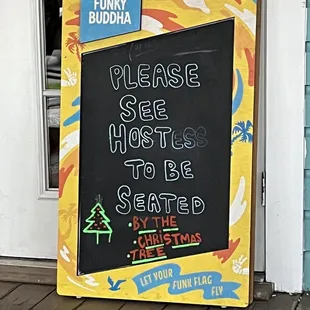 FUNKY
BUDDHA
PLEASE
SEE
HOSTESS
TO BE
SEATED
• BY THE
• CHRISTMAS
TREE
LET YOUR
FUNK FLAG
FLY